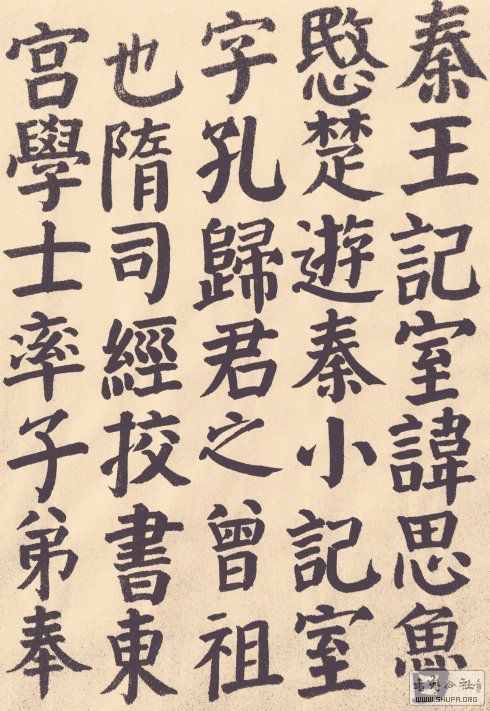 秦王記室諱思魯
愍楚遊秦小記室
字孔歸君之曾祖
也隋司經挍書東
宫學士率子弟奉
WWW.SHUFA.ORG